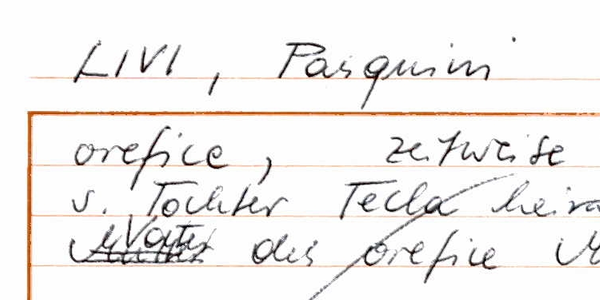 LIVI, Pasquini
orefice, zeitweise
s. Tochter Tecla heira
Vater des orefice M